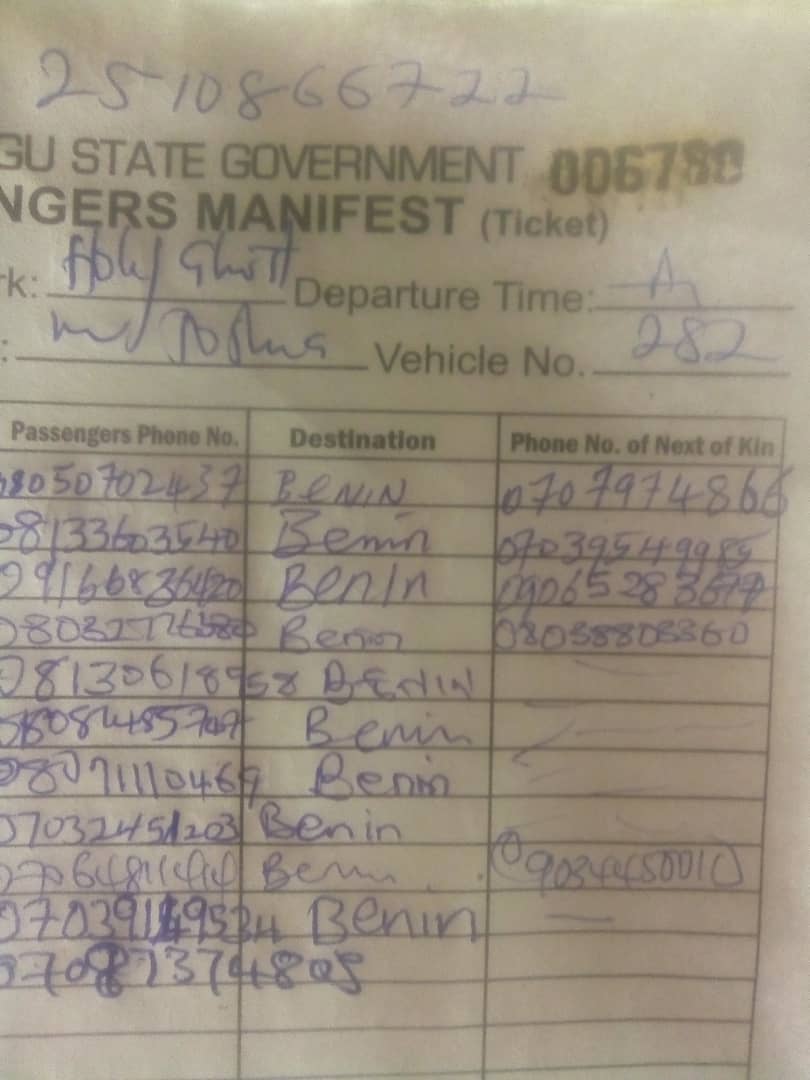 2510866722
GU STATE GOVERNMENT 006780
NGERS MANIFEST (Ticket)
rk: Holy Ghost Departure Time:
: Joshua Vehicle No. 282
Passengers Phone No. Destination Phone No. of Next of Kin
08050702437 BENIN 0707974866
08133603540 Benin 07039549985
09166836420 BENIN
Benin 08038803360
08130618958 BENIN
Benin
08071110469 Benin
07032451203 Benin
Benin 09034450010
Benin